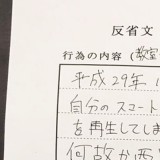 反省文
行為の内容 (教室
平成29年 1
自分のスコート
を再生してしま
何故か西